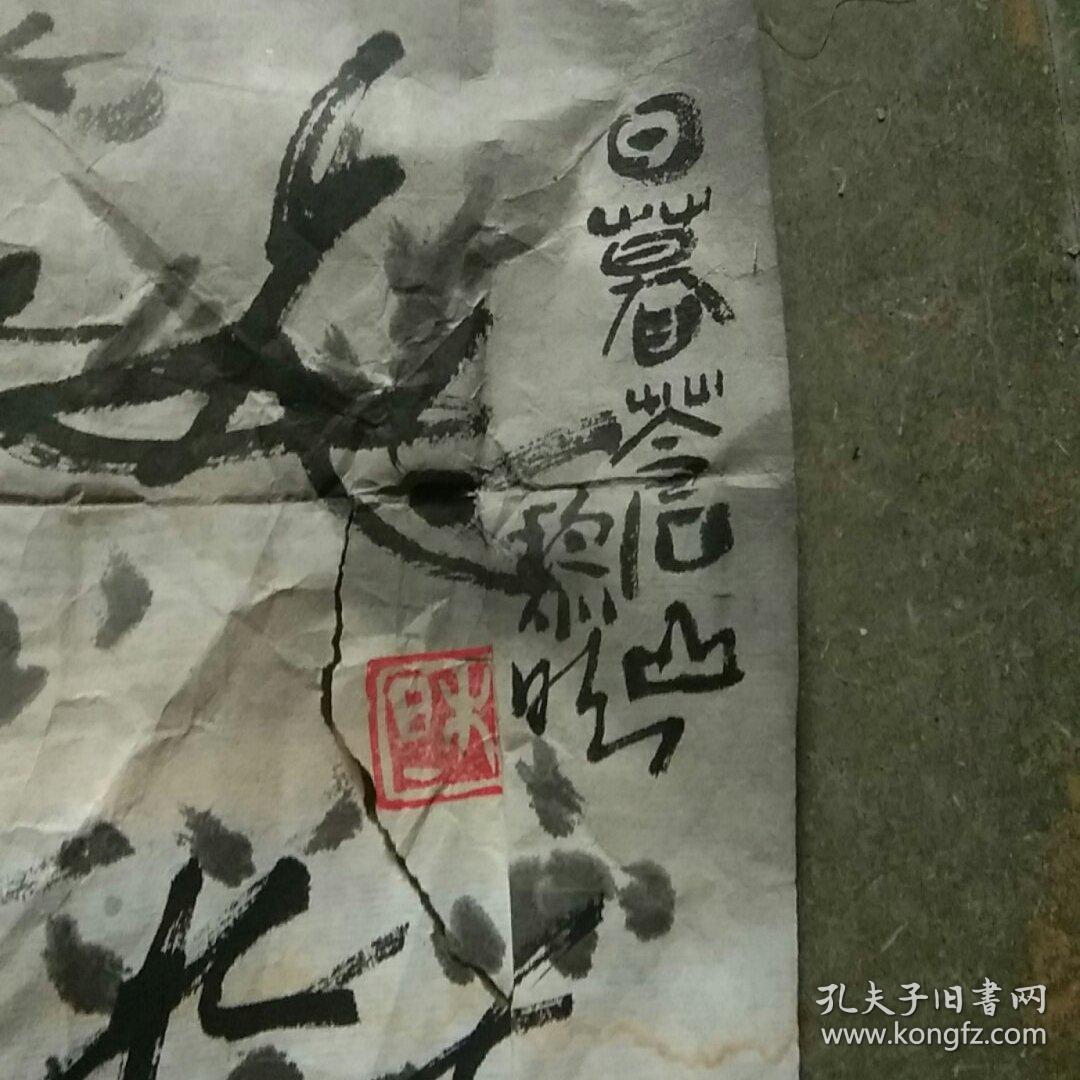 日暮蒼山
黎
孔夫子旧書网
www.kongfz.com